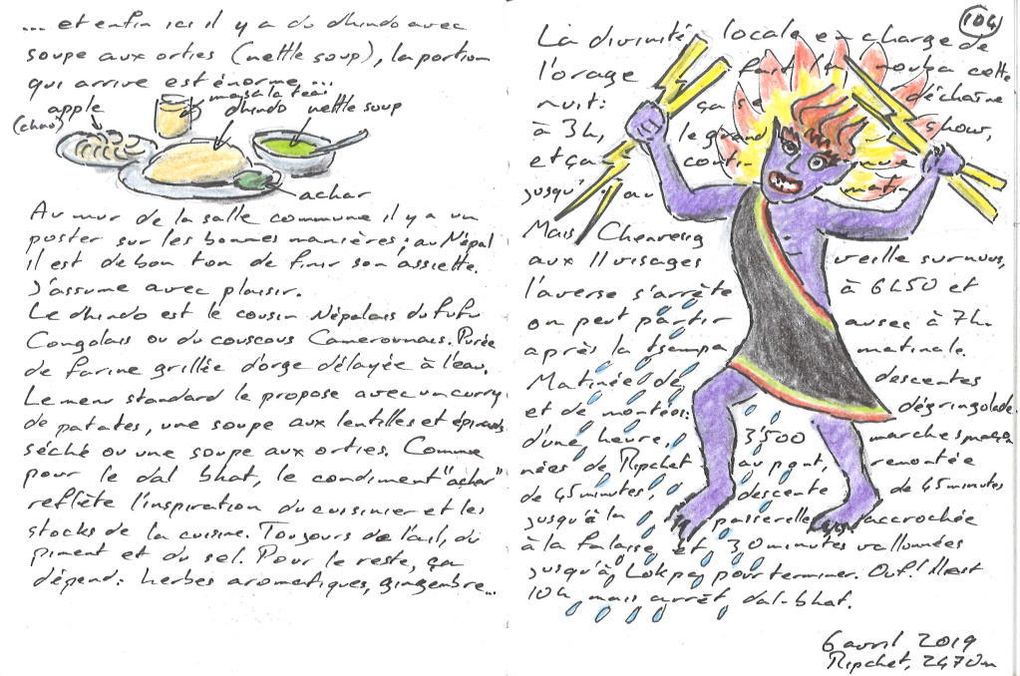 ... et enfin ici il y a du dhindo avec
soupe aux orties (nettle soup), la portion
qui arrive est énorme...
masala tea
apple
dhindo
nettle soup
achar
Au mur de la salle commune il y a un
poster sur les bonnes manières ; au Népal
il est de bon ton de finir son assiette.
J'assume avec plaisir.
Le dhindo est le cousin Népalais du fufu
Congolais ou du couscous Camerounais. Purée
de farine grillée d'orge délayée à l'eau.
Le menu standard le propose avec un curry
de patates, une soupe aux lentilles et épinards
séché ou une soupe aux orties. Comme
pour le dal bhat, le condiment "achar"
reflète l'inspiration du cuisinier et les
stocks de la cuisine. Toujours de l'ail, du
piment et du sel. Pour le reste, ça
dépend : herbes aromatiques, gingembre...
104
La divinité locale en charge de
l'orage fait la nouba cette
nuit : ça se déchaîne
à 3h, le grand show,
et ça continue
jusqu'au matin
Mais Chenresig
aux 11 visages veille sur nous,
l'averse s'arrête à 6h50 et
on peut partir aussec à 7h
après la tsampa matinale.
Matinée de descentes
et de montées : dégringolade
d'une heure, 3'500 marches maçon
nées de Ripchet au pont, remontée
de 45 minutes, descente de 45 minutes
jusqu'à la passerelle accrochée
à la falaise et 30 minutes vallonnées
jusqu'à Lokpa pour terminer. Ouf ! Il est
10h mais arrêt dal-bhat.
6 avril 2019
Ripchet, 2470m